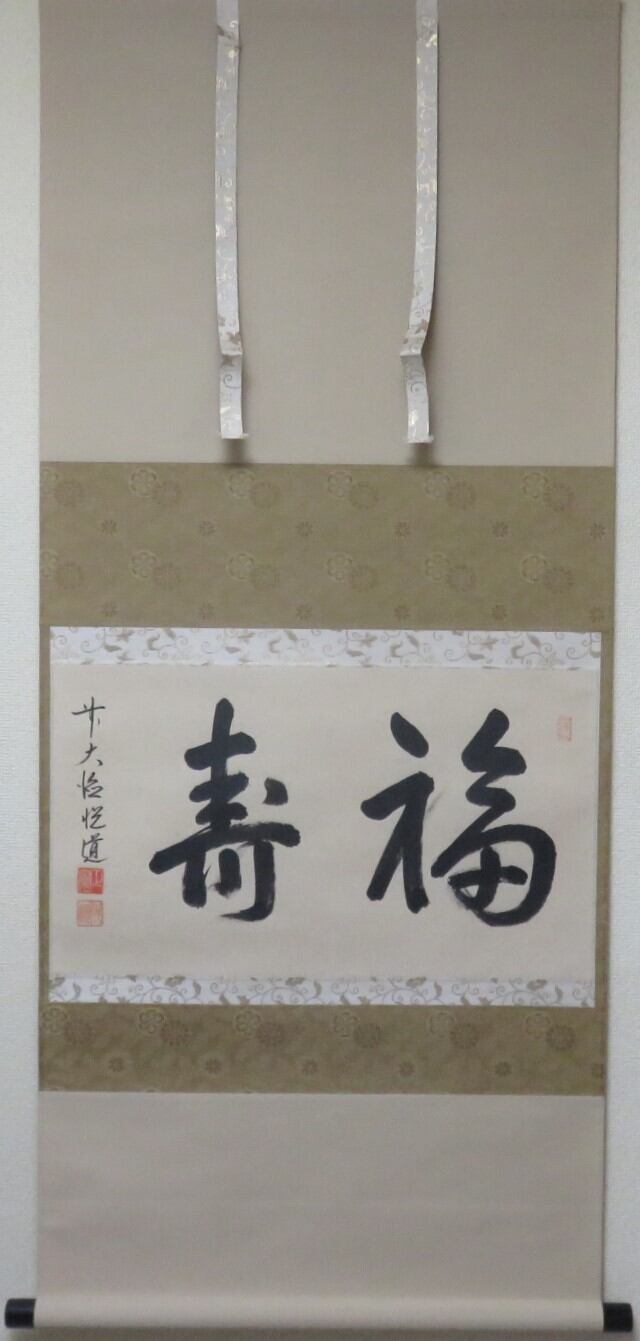 福寿
前大徳悦道